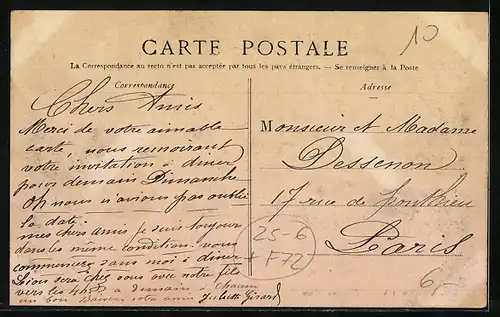 CARTE POSTALE
10
La Correspondance au recto n'est pas acceptée par tous les pays étrangers. — Se renseigner à la Poste
Correspondance
Adresse
Chers Amis
Merci de votre aimable
carte, nous
votre invitation à diner
pour demain Dimanche
Oh nous n'avions pas oublié
la date.
mes chers amis je suis toujours
dans les même condition. vous
commencerez sans moi à diner
chez vous avec notre fils
vers les à demain à chacun
un bon Baiser votre amie Juliette Girard
Monsieur et Madame
Dessenon
17 rue de Ponthieu
Paris
25-6
+ F72
6,-